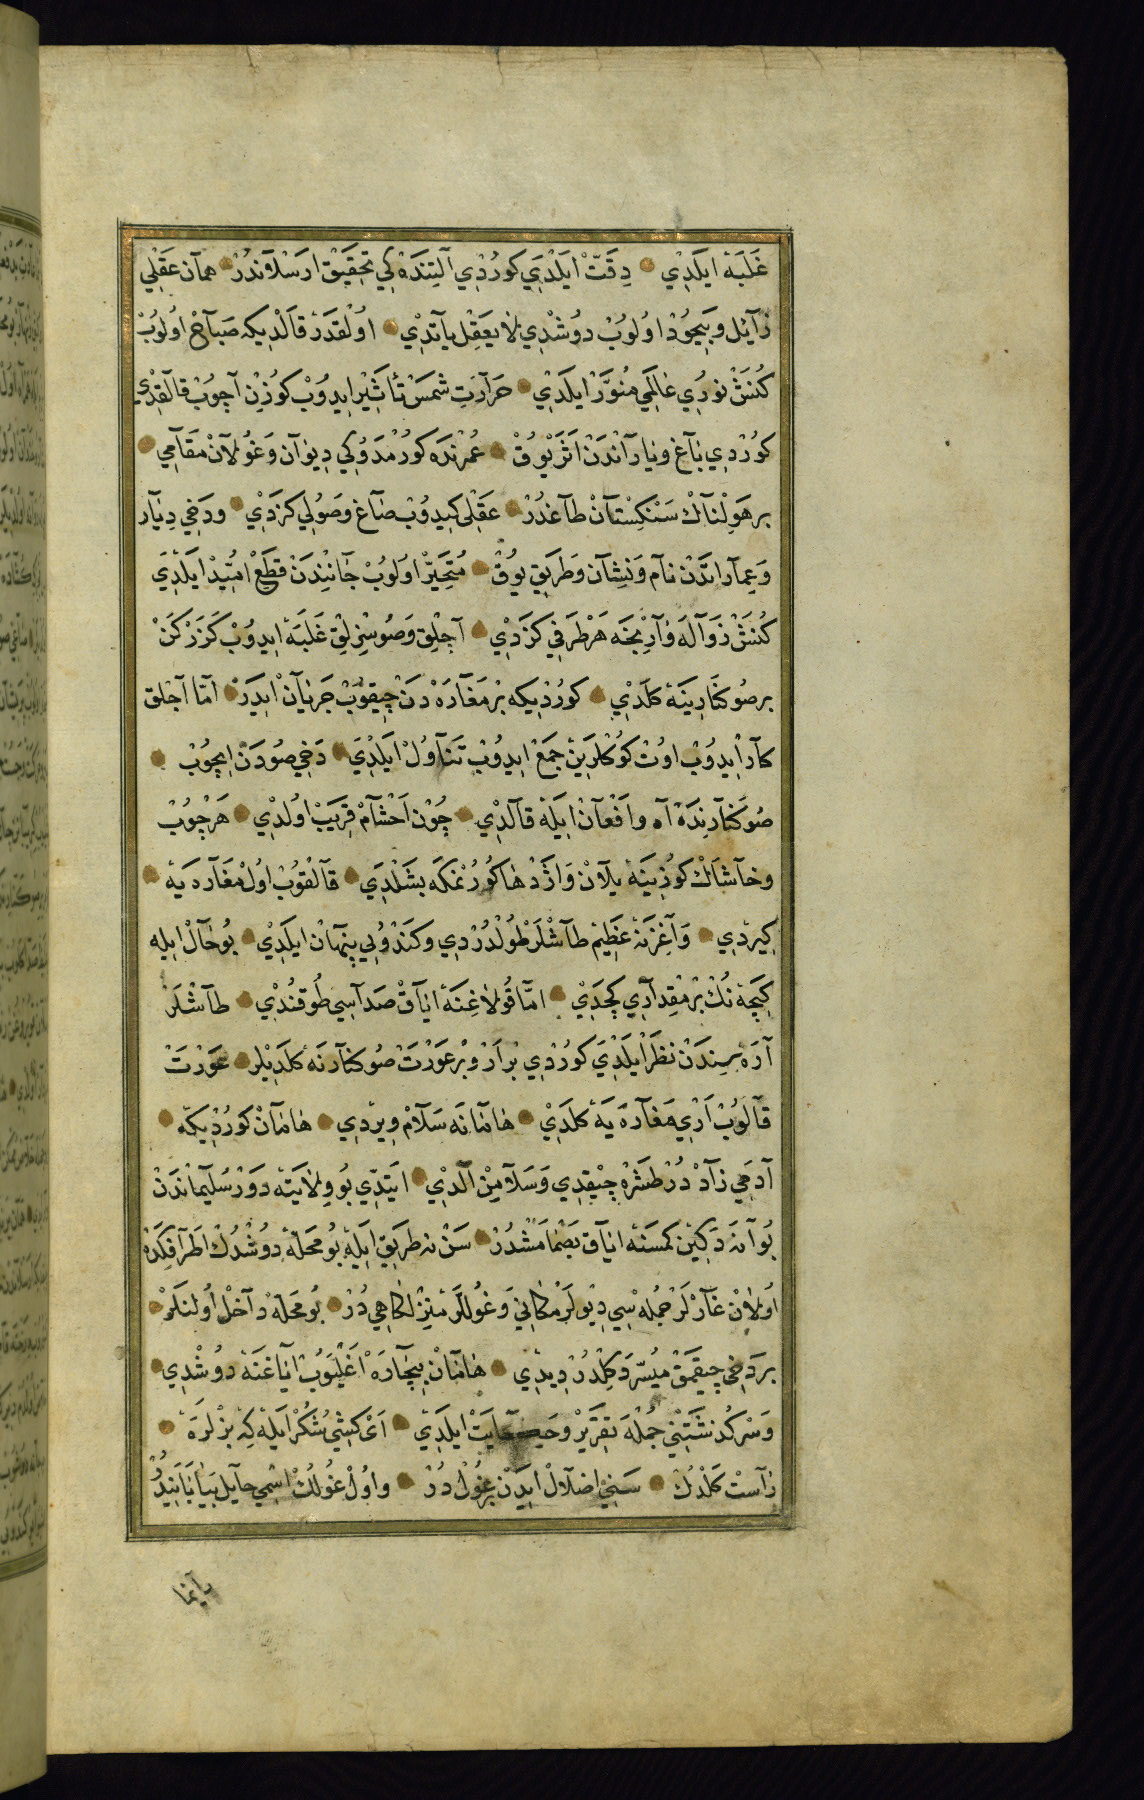 غَلَبَهْ ایلَدِي دِقَّتْ ایَلْدِي كورْدِي آلتِنْدَهْ كِي تَحْقِیقْ ارَسْلَانْدُرْ همآن عَقْلِي
زَآئِل وبِیخُودْ اولوُبْ دوُشْدِي لَا یَعْقِل یَاتْدِي اوُلْقَدَرْ قَالْدِیكه صَبَاحْ اوُلوُبْ
كُنَشْ نورِي عَالَمِي مُنَوَّرْ ایلَدِي حَرَارَتِ شَمسْ تَأثِیْر ایدوُبْ كوُزِنْ آچوُبْ قَالْقْدِي
كورْدِي بَاغ ویَارَانْدَنْ اَثَرْ یوُقْ عُمْرِنْدَه كورْمَدوُكِي دِیوَان وَغُولَانْ مَقَامِي
بر هَوْلْنَاكْ سَنْكِسْتَانْ طَاغدُرْ عَقْلِي كیدوُب صَاغ وصُولِي كَزْدِي ودَخِي دِیَار
وَعِمَارَاتْدَنْ نَام وَنِشَان وَطَرِیق یوُقْ مُتَحَیِّرْ اولوُبْ جَانِنْدَنْ قَطْعْ امُّیدْ ایَلْدِي
كُنَشْ زَوَالَه وَارِنْجَه هَرْ طَرَفِي كَزْدِي آچْلِق وَصُوسُزلِقْ غَلَبَهْ ایدوُبْ كَزَرْكَنْ
بر صُو كَنَارِینَهْ كَلْدِي كورْدِیكه بْر مَغَارَهْ دَنْ چِیقوُبْ جَرَیَانْ ایدَرْ امَّا آجْلق
كَار ایدوُبْ اوُتْ كوُكْلَرِینْ جَمعْ ایدوُبْ تَنَاوُلْ ایَلْدِي دَخِي صُودَنْ ایچوُبْ
صُو كَنَارِنْدَهْ آه وافْغَانْ ایَلَهْ قَالْدِي چُونْ اَخْشَامْ قَرِیبْ اولْدِي هَرْ چوُبْ
وخَاشَاكْ كوُزِینَهْ یلَانْ وَاژْدَهَا كُورُنْمَكَه بَشْلَدِي قَالْقوُبْ اوُلْ مَغَارَه یَهْ
كِیرْدِي وَآغْزِنَهْ عَظِیمْ طَاشْلَرْ طُولْدُرْدِي وكَنْدوُیِي پِنْهَانْ ایلَدِي بوُحَالْ ایله
كِیجَه نُكْ بْر مِقْدَارِي كچْدِي امَّا قُولَاغِنَهْ ایَاقْ صَدَاسِي طُوقُنْدِي طَاشْلَرْ
آرَه سِنْدَنْ نَظَرْ ایَلْدِي كورْدِي بْر اَرْ وبْر عَوْرَتْ صُو كَنَارِنَه كَلْدِیلر عَوْرَتْ
قَالوُبْ اَرِي مَغَارَه یَهْ كَلْدِي هَامَانَه سَلَامْ وِیرْدِي هَامَانْ كورْدِیكه
آدَمِي زَادْ دُرْ طَشْرَه چِیقدِي وَسَلَامِنْ آلْدِي ایتْدِي بُو وِلَایتَه دَوْرِ سُلَیْمَانْدَنْ
بُو آنَه دَكِینْ كمْسَنَه ایَاق بَصْمَامِشْدُرْ سَنْ نه طَرِیقْ ایلَه بُو مَحَلَّه دوُشْدُكْ اطْرَافِكْدَه
اُولَانْ غَارْلَرْ جُملَه سِي دِیْولَرْ مَكَانِي وَغُوللَرْ مَنْزِلْكَاهِي دُرْ بُو مَحَلَّه دَاخِلْ اُولَنْلَرْ
بر دَخِي چِیقمَقْ مُیَسَّر دَكِلْدُرْ دِیدِي هَامَانْ بِیچَارَه اَغْلیوُبْ ایَاغَنَهْ دوُشْدِي
وَسَرْ كُذَشْتِنِي جُمْلَه تَقْرِیرْ وحِكَایَتْ ایلَدِي اَي كِشِي شُكْر ایلَه كِه بِزْلَرَه
رَاسْتْ كَلْدُكْ سَنِي اضلَالْ ایدَنْ بِر غُولْ دُرْ واوُلْ غُولُكْ اسْمِي حَایل بَیَابَانِیدُرْ